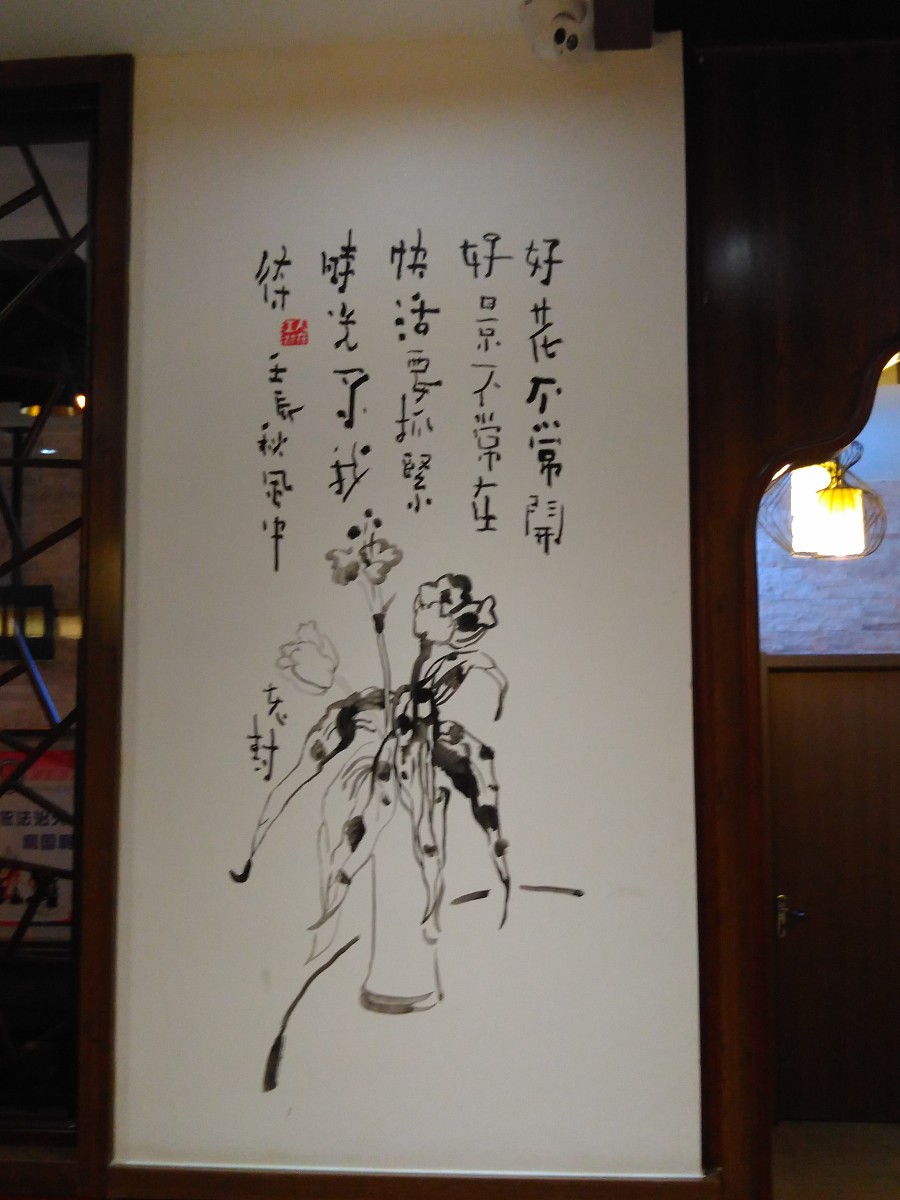 好花不常開
好景不常在
快活要抓緊
時光不我
待
壬辰秋風中
封
依法治